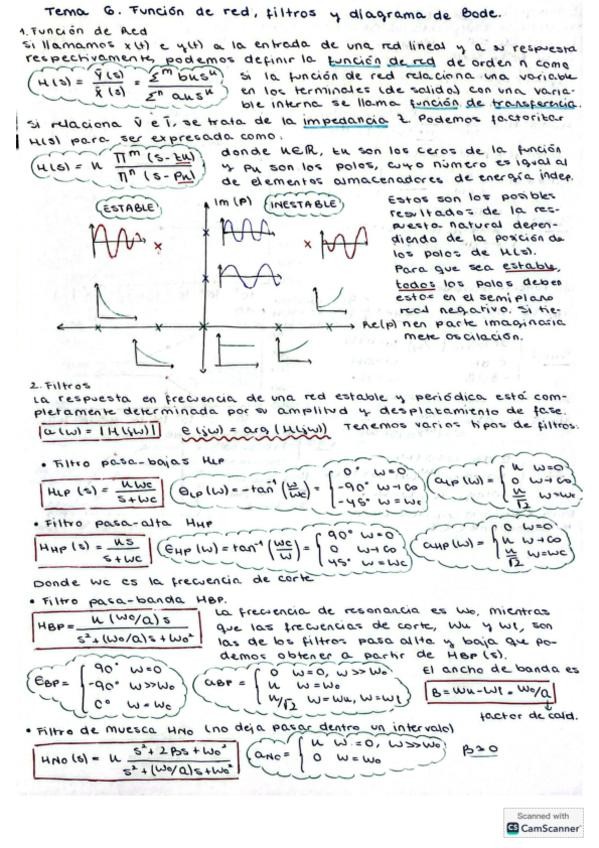 Tema 6. Función de red, filtros y diagrama de Bode.
1. Función de Red
Si llamamos x(t) e y(t) a la entrada de una red lineal y a su respuesta
respectivamente, podemos definir la función de red de orden n como
H(s) = Ỹ(s) / X̃(s) = Σᵐ bₖsᵏ / Σⁿ aₖsᵏ
si la función de red relaciona una variable
en los terminales (de salida) con una varia-
ble interna se llama función de transferencia.
Si relaciona Ṽ e Ĩ, se trata de la impedancia Z. Podemos factorizar
H(s) para ser expresada como:
H(s) = K Πᵐ (s - zₖ) / Πⁿ (s - pₖ)
donde K∈R, zₖ son los ceros de la función
y pₖ son los polos, cuyo número es igual al
de elementos almacenadores de energía indep.
ESTABLE
Im(P)
INESTABLE
Re(p)
Estos son los posibles
resultados de la res-
puesta natural depen-
diendo de la posición de
los polos de H(s).
Para que sea estable,
todos los polos deben
estar en el semiplano
real negativo. Si tie-
nen parte imaginaria
mete oscilación.
2. Filtros
La respuesta en frecuencia de una red estable y periódica está com-
pletamente determinada por su amplitud y desplazamiento de fase.
a(w) = |H(jw)| θ(jw) = arg(H(jw)) Tenemos varios tipos de filtros:
• Filtro pasa-bajas HLP
HLP(s) = K wc / s + wc
θLP(w) = -tan⁻¹(w/wc) = { 0° w=0
-90° w→∞
-45° w=wc
aLP(w) = { K w=0
0 w→∞
K/√2 w=wc
• Filtro pasa-alta HHP
HHP(s) = Ks / s + wc
θHP(w) = tan⁻¹(wc/w) = { 90° w=0
0 w→∞
45° w=wc
aHP(w) = { 0 w=0
K w→∞
K/√2 w=wc
Donde wc es la frecuencia de corte
• Filtro pasa-banda HBP.
HBP = K(w0/Q)s / s²+(w0/Q)s+w0²
La frecuencia de resonancia es w0, mientras
que las frecuencias de corte, wu y wl, son
las de los filtros pasa alta y baja que po-
demos obtener a partir de HBP(s).
θBP = { 90° w=0
-90° w>>w0
0° w=w0
aBP = { 0 w=0, w>>w0
K w=w0
K/√2 w=wu, w=wl
El ancho de banda es
B = wu - wl = w0/Q
factor de calid.
• Filtro de muesca HNO (no deja pasar dentro un intervalo)
HNO(s) = K s²+2βs+w0² / s²+(w0/Q)s+w0²
aNO = { K w=0, w>>w0
0 w=w0
β≥0
Scanned with
CS CamScanner